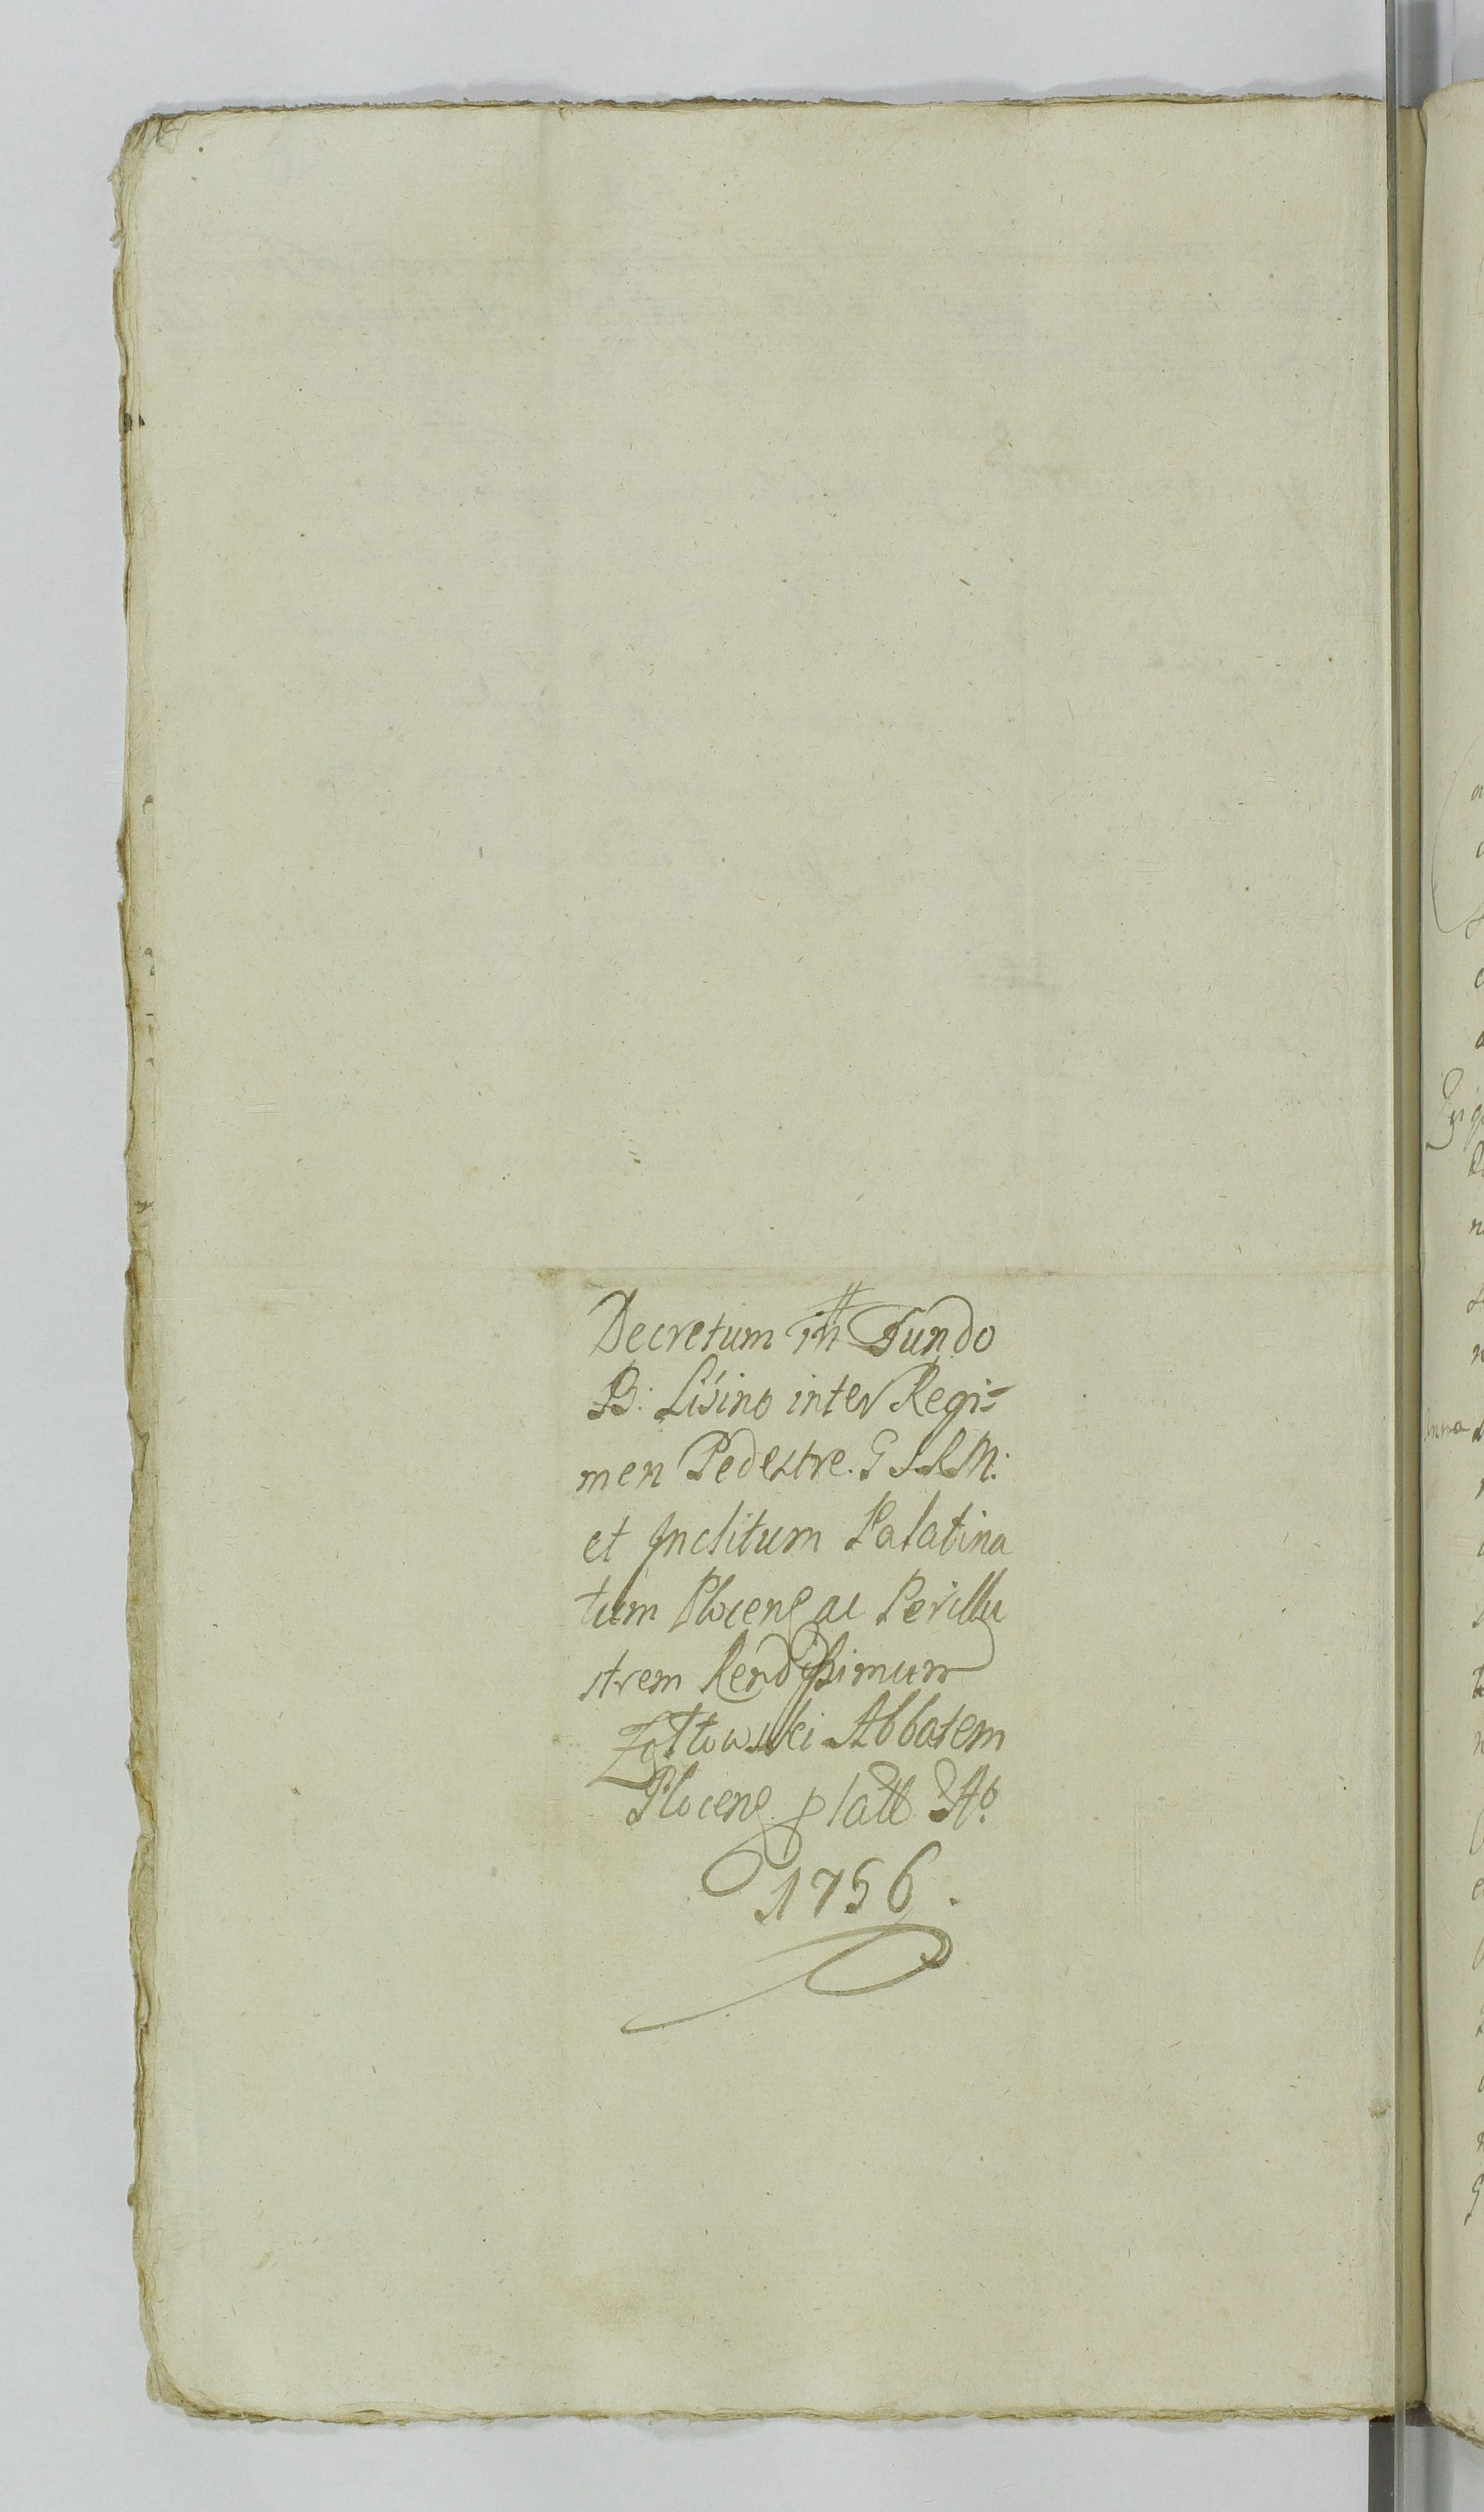 Decretum in Fundo
B: Lisino inter Regi=
men Pedestre. G S R M:
et Inclitum Palatina
tum Plocens ac Perillu
strem Rendissimum
Zołtowski Abbatem
Plocens latt Ao.
1756.